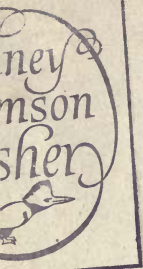 ney
mson
sher